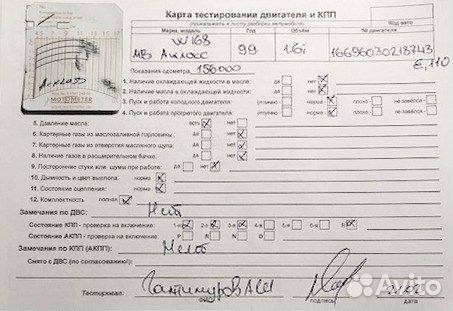 Карта тестирования двигателя и КПП
(прикалывать к листу разборки автомобиля)
Код авто
Марка, модель
Год
Объем
W168
МВ А класс
99
1.6i
16696030218743
E,110
А-класс
MOTOMETER
Показания одометра 156000
1. Наличие охлаждающей жидкости в масле: да нет
2. Наличие масла в охлаждающей жидкости: да нет
3. Пуск и работа холодного двигателя: отлично норма плохо не завелся
4. Пуск и работа прогретого двигателя: отлично норма плохо не завелся
5. Давление масла: есть нет
6. Картерные газы из маслозаливной горловины да нет
7. Картерные газы из отверстия масляного щупа: да нет
8. Наличие газов в расширительном бачке: да нет
9. Посторонние стуки или шумы при работе: да нет
10. Дымность и цвет выхлопа норма
11. Состояние сцепления: норма
12. Комплектность полная
Замечания по ДВС: Нет
Состояние КПП - проверка на включение: 1-я 2-я 3-я 4-я 5-я R
Состояние АКПП - проверка на включение: P R N D
Замечания по КПП (АКПП):
Снято с ДВС (по согласованию):
Тестировал:
ФИО
подпись
дата
Avito